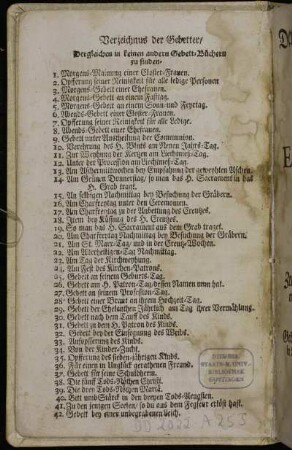 Verzeichnus der Gebetter,
Dergleichen in keinen andern Gebett-Büchern
zu finden.
1. Morgens-Mainung einer Closter-Frauen.
2. Opfferung seiner Reinigkeit für alle ledige Personen
3. Morgens-Gebett einer Ehefrauen.
4. Morgens-Gebett an einem Fasttag.
5. Morgens-Gebett an einem Sonn-und Feyrtag.
6. Abends-Gebett einer Closter-Frauen.
7. Opfferung seiner Reinigkeit für alle Ledige.
8. Abends-Gebett einer Ehefrauen.
9. Gebett unter Austheilung der Communion.
10. Verehrung des H. Bluts am Neuen Jahrs-Tag.
11. Zur Weyhung der Kertzen am Liechtmeß-Tag.
12. Unter der Procession am Liechtmeß-Tag.
13. Am Aschermittwochen bey Empfahung der geweyhten Aschen.
14. Am Grünen Donnerstag, so man das H. Sacrament in das
H. Grab tragt.
15. Am selbigen Nachmittag bey Besuchung der Gräbern.
16. Am Charfreytag unter den Ceremonien.
17. Am Charfreytag zu der Anbettung des Creutzes.
18. Item bey Küssung des H. Creutzes.
19. So man das H. Sacrament aus dem Grab traget.
20. Am Charfreytag Nachmittag bey Besuchung der Gräbern.
21. Am St. Marx-Tag, und in der Creutz-Wochen.
22. Am Allerheiligen-Tag Nachmittag.
23. Am Tag der Kirchweyhung.
24. Am Fest des Kirchen-Patrons.
25. Gebett an seinem Geburts-Tag.
26. Gebett am H. Patron-Tag, dessen Namen man hat.
27. Gebett an seinem Profession-Tag.
28. Gebett einer Braut an ihrem Hochzeit-Tag.
29. Gebett der Eheleuthen Jährlich am Tag ihrer Vermählung.
30. Gebett nach dem Tauff des Kinds.
31. Gebett zu dem H. Patron des Kinds.
32. Gebett bey der Einsegnung des Weibs.
33. Auffopfferung des Kinds.
34. Von der Kinder-Zucht.
35. Opfferung des sieben-jährigen Kinds.
36. Für einen in Unglück gerathenen Freund.
37. Gebett für seine Schuldnern.
38. Die fünff Tods-Nöthen Christi.
39. Die drey Tods-Nöthen Mariä.
40. Bett und Stärck in den dreyen Tods-Aengsten.
41. Zu den jenigen Seelen, so du aus dem Fegfeur erlößt hast.
42. Gebett bey einer unbegrabenen Leich.